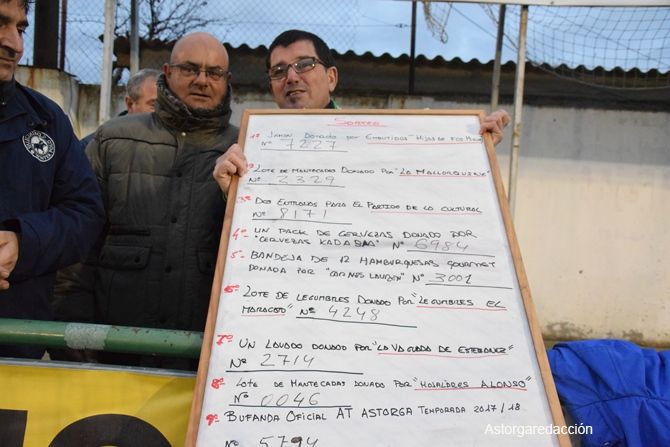 Sorteo
1º Jamón Donado por Embutidos "Hijos de Fco
Nº 7227
Lote de Mantecadas Donado por "La Mallorquina"
Nº 2329
3º Dos Entradas para el Partido de la Cultural
Nº 8171
4º Un pack de cervezas donado por
"Cervezas Kadabra" Nº 6984
5º Bandeja de 12 Hamburguesas Gourmet
Donada por Nº 3001
6º Lote de Legumbres Donado por "Legumbres El
Maragato" Nº 4248
7º Un Lavado donado por "La Vaguada de Estebanez"
Nº 2714
8º Lote de Mantecadas donado por "Hojaldres Alonso"
Nº 0046
9º Bufanda Oficial AT Astorga Temporada 2017/18
Nº 5794
Astorgaredacción
Astorgaredacción